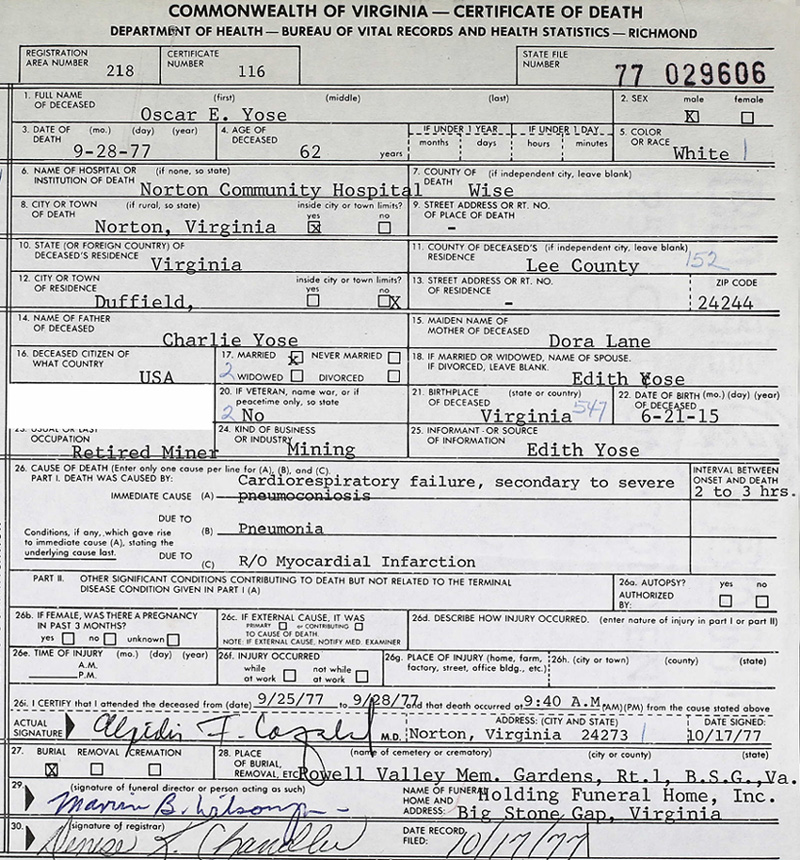 COMMONWEALTH OF VIRGINIA — CERTIFICATE OF DEATH
DEPARTMENT OF HEALTH — BUREAU OF VITAL RECORDS AND HEALTH STATISTICS — RICHMOND
REGISTRATION AREA NUMBER 218 CERTIFICATE NUMBER 116 STATE FILE NUMBER 77 029606
1. FULL NAME OF DECEASED (first) (middle) (last) Oscar E. Yose 2. SEX male X female
3. DATE OF DEATH (mo.) (day) (year) 9-28-77 4. AGE OF DECEASED 62 years IF UNDER 1 YEAR months days IF UNDER 1 DAY hours minutes 5. COLOR OR RACE White
6. NAME OF HOSPITAL OR INSTITUTION OF DEATH (if none, so state) Norton Community Hospital 7. COUNTY OF DEATH (if independent city, leave blank) Wise
8. CITY OR TOWN OF DEATH (if rural, so state) Norton, Virginia inside city or town limits? yes X no 9. STREET ADDRESS OR RT. NO. OF PLACE OF DEATH -
10. STATE (OR FOREIGN COUNTRY) OF DECEASED'S RESIDENCE Virginia 11. COUNTY OF DECEASED'S RESIDENCE (if independent city, leave blank) Lee County 152
12. CITY OR TOWN OF RESIDENCE Duffield, inside city or town limits? yes no X 13. STREET ADDRESS OR RT. NO. OF RESIDENCE - ZIP CODE 24244
14. NAME OF FATHER OF DECEASED Charlie Yose 15. MAIDEN NAME OF MOTHER OF DECEASED Dora Lane
16. DECEASED CITIZEN OF WHAT COUNTRY USA 17. MARRIED X NEVER MARRIED 2 WIDOWED DIVORCED 18. IF MARRIED OR WIDOWED, NAME OF SPOUSE. IF DIVORCED, LEAVE BLANK. Edith Yose
20. IF VETERAN, name war, or if peacetime only, so state 2 No 21. BIRTHPLACE OF DECEASED (state or country) Virginia 547 22. DATE OF BIRTH (mo.) (day) (year) OF DECEASED 6-21-15
23. USUAL OR LAST OCCUPATION Retired Miner 24. KIND OF BUSINESS OR INDUSTRY Mining 25. INFORMANT - OR SOURCE OF INFORMATION Edith Yose
26. CAUSE OF DEATH (Enter only one cause per line for (A), (B), and (C).
PART I. DEATH WAS CAUSED BY: Cardiorespiratory failure, secondary to severe INTERVAL BETWEEN ONSET AND DEATH
IMMEDIATE CAUSE (A) pneumoconiosis 2 to 3 hrs.
Conditions, if any, which gave rise to immediate cause (A), stating the underlying cause last.
DUE TO (B) Pneumonia
DUE TO (C) R/O Myocardial Infarction
PART II. OTHER SIGNIFICANT CONDITIONS CONTRIBUTING TO DEATH BUT NOT RELATED TO THE TERMINAL DISEASE CONDITION GIVEN IN PART I (A) 26a. AUTOPSY? AUTHORIZED BY: yes no
26b. IF FEMALE, WAS THERE A PREGNANCY IN PAST 3 MONTHS? yes no unknown 26c. IF EXTERNAL CAUSE, IT WAS PRIMARY or CONTRIBUTING TO CAUSE OF DEATH. NOTE: IF EXTERNAL CAUSE, NOTIFY MED. EXAMINER 26d. DESCRIBE HOW INJURY OCCURRED. (enter nature of injury in part I or part II)
26e. TIME OF INJURY (mo.) (day) (year) A.M. P.M. 26f. INJURY OCCURRED while at work not while at work 26g. PLACE OF INJURY (home, farm, factory, street, office bldg., etc.) 26h. (city or town) (county) (state)
26i. I CERTIFY that I attended the deceased from (date) 9/25/77 to 9/28/77 and that death occurred at 9:40 A.M. (AM)(PM) from the cause stated above
ACTUAL SIGNATURE M.D. ADDRESS: (CITY AND STATE) Norton, Virginia 24273 DATE SIGNED: 10/17/77
27. BURIAL X REMOVAL CREMATION 28. PLACE OF BURIAL, REMOVAL, ETC. (name of cemetery or crematory) (city or county) (state) Powell Valley Mem. Gardens, Rt.1, B.S.G.,Va.
29. (signature of funeral director or person acting as such) Marvin B. NAME OF FUNERAL HOME AND ADDRESS: Holding Funeral Home, Inc.
Big Stone Gap, Virginia
30. (signature of registrar) Denise K. Chandler DATE RECORD FILED: 10/17/77